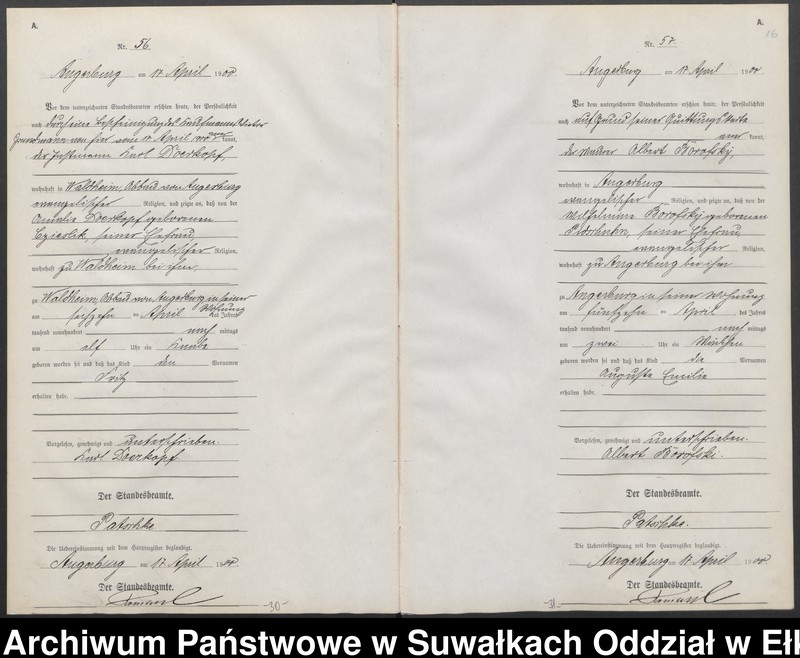 A.
Nr. 56.
Angerburg am 17 April 1900
Vor dem unterzeichneten Standesbeamten erschien heute, der Persönlichkeit
nach durch eine
von hier vom 17 April kannt,
der Instmann Karl Doerkopf,
wohnhaft in Waldheim, Abbau von Angerburg
evangelischer Religion, und zeigte an, daß von der
Amalie Doerkopf geborenen
seiner Ehefrau,
evangelischer Religion,
wohnhaft zu Waldheim bei ihm,
zu Waldheim, Abbau von Angerburg in seiner
Wohnung
am sechzehn ten April des Jahres
tausend neunhundert nach mittags
um elf Uhr ein Knabe
geboren worden sei und daß das Kind den Vornamen
Fritz
erhalten habe.
Vorgelesen, genehmigt und unterschrieben.
Karl Doerkopf
Der Standesbeamte.
Patschke.
Die Uebereinstimmung mit dem Hauptregister beglaubigt.
Angerburg am 17 April 1900
Der Standesbeamte.
-30-
A.
16
Nr. 57.
Angerburg am 17 April 1900
Vor dem unterzeichneten Standesbeamten erschien heute, der Persönlichkeit
nach auf Grund seiner Quittungskarte
kannt,
der Maurer Albert Borofsky,
wohnhaft in Angerburg
evangelischer Religion, und zeigte an, daß von der
Wilhelmine Borofsky geborenen
seiner Ehefrau,
evangelischer Religion,
wohnhaft zu Angerburg bei ihm
zu Angerburg in seiner Wohnung
am fünfzehn ten April des Jahres
tausend neunhundert nach mittags
um zwei Uhr ein Mädchen
geboren worden sei und daß das Kind die Vornamen
Auguste Emilie
erhalten habe.
Vorgelesen, genehmigt und unterschrieben.
Albert Borofski.
Der Standesbeamte.
Patschke.
Die Uebereinstimmung mit dem Hauptregister beglaubigt.
Angerburg am 17 April 1900
Der Standesbeamte.
-31-
Archiwum Państwowe w Suwałkach Oddział w Ełk